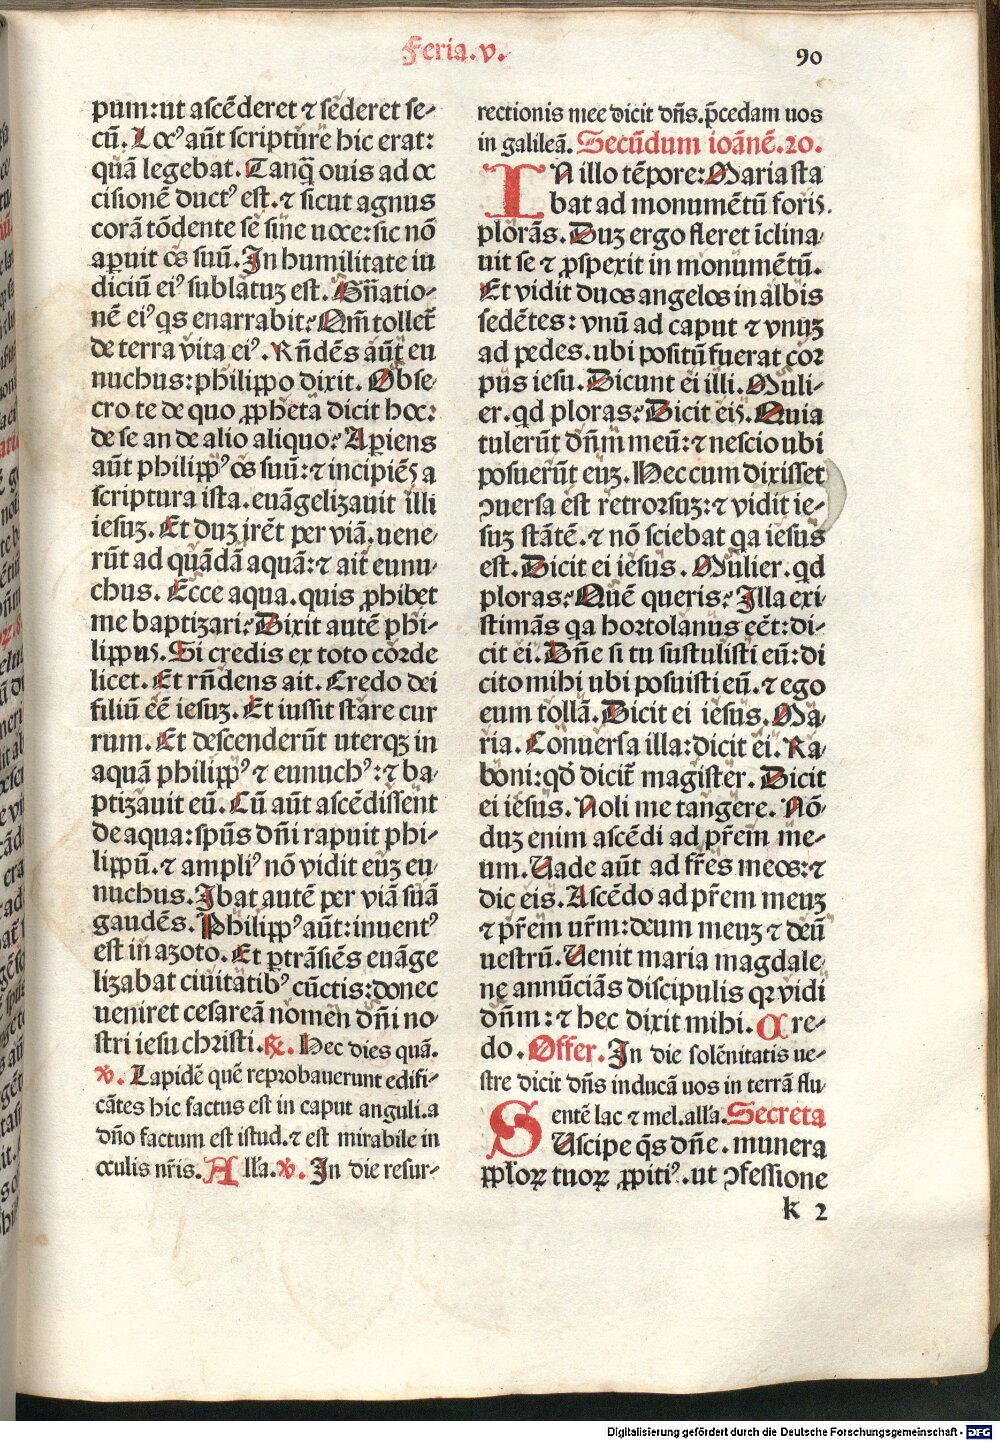 Feria.v.
90
pum:ut ascēderet ⁊ sēderet se-
cū. Locꝰ aūt scripture hic erat:
quā legebat. Tanq̄ ouis ad oc
cisionē ductꝰ est. ⁊ sicut agnus
corā tōdente sē sine uoce: sic nō
aperuit os suū. In humilitate iu
diciū eiꝰ sublatuʒ est. Gn̄atio-
nē eiꝰ qs enarrabit: Qm̄ tollet̄
de terra vita eiꝰ. Rn̄dēs aūt eu
nuchus: philippo dixit. Obse-
cro te de quo ꝓpheta dicit hoc:
de se an de alio aliquo: Apiens
aūt philippꝰ os suū: ⁊ incipiēs a
scriptura ista. euāgelizauit illi
iesuʒ. Et duʒ irēt per viā. uene-
rūt ad quādā aquā: ⁊ ait eunu-
chus. Ecce aqua. quis ꝓhibet
me baptizari: Dixit autē phi-
lippus. Si credis ex toto corde
licet. Et rn̄dens ait. Credo dei
filiū eē iesuʒ. Et iussit stare cur
rum. Et descenderūt uterqʒ in
aquā philippꝰ ⁊ eunuchꝰ: ⁊ ba-
ptizauit eū. Cū aūt ascēdissent
de aqua: spūs dn̄i rapuit phi-
lippū. ⁊ ampliꝰ nō vidit euʒ eu-
nuchus. Ibat autē per viā suā
gaudēs. Philippꝰ aūt: inuentꝰ
est in azoto. Et ꝑtrāsiēs euāge
lizabat ciuitatibꝰ cūctis: donec
ueniret cesareā nomen dn̄i no-
stri iesu christi. ℟. Hec dies quā.
℣. Lapidē quē reprobauerunt edifi-
cātes hic factus est in caput anguli. a
dn̄o factum est istud. ⁊ est mirabile in
oculis nr̄is. All'a. ℣. In die resur-
rectionis mee dicit dn̄s. p̄cedam uos
in galileā. Secūdum ioānē. 20.
IN illo tēpore: Maria sta
bat ad monumētū foris.
plorās. Duʒ ergo fleret īclina-
uit se ⁊ ꝓspexit in monumētū.
Et vidit duos angelos in albis
sedētes: vnū ad caput ⁊ vnuʒ
ad pedes. ubi positū fuerat cor
pus iesu. Dicunt ei illi. Muli-
er. qd ploras: Dicit eis. Quia
tulerūt dn̄m meū: ⁊ nescio ubi
posuerūt euʒ. Hec cum dixisset
ꝯuersa est retrorsuʒ: ⁊ vidit ie-
suʒ stātē. ⁊ nō sciebat qa iesus
est. Dicit ei iesus. Mulier. qd
ploras: Quē queris: Illa exi-
stimās qa hortolanus eēt: di-
cit ei. Dn̄e si tu sustulisti eū: di
cito mihi ubi posuisti eū. ⁊ ego
eum tollā. Dicit ei iesus. Ma-
ria. Conuersa illa: dicit ei. Ra-
boni: qd̄ dicit̄ magister. Dicit
ei iesus. Noli me tangere. Nō-
duʒ enim ascēdi ad pr̄em me-
um. Uade aūt ad fr̄es meos: ⁊
dic eis. Ascēdo ad pr̄em meuʒ
⁊ pr̄em ur̄m: deum meuʒ ⁊ deū
uestrū. Uenit maria magdale-
ne annūciās discipulis qꝛ vidi
dn̄m: ⁊ hec dixit mihi. Cre-
do. Offer. In die solēnitatis ue-
stre dicit dn̄s inducā uos in terrā flu-
entē lac ⁊ mel. all'a. Secreta
SUscipe q̄s dn̄e. munera
ppl'oꝝ tuoꝝ ꝓpitiꝰ. ut ꝯfessione
k 2
Digitalisierung gefördert durch die Deutsche Forschungsgemeinschaft - DFG